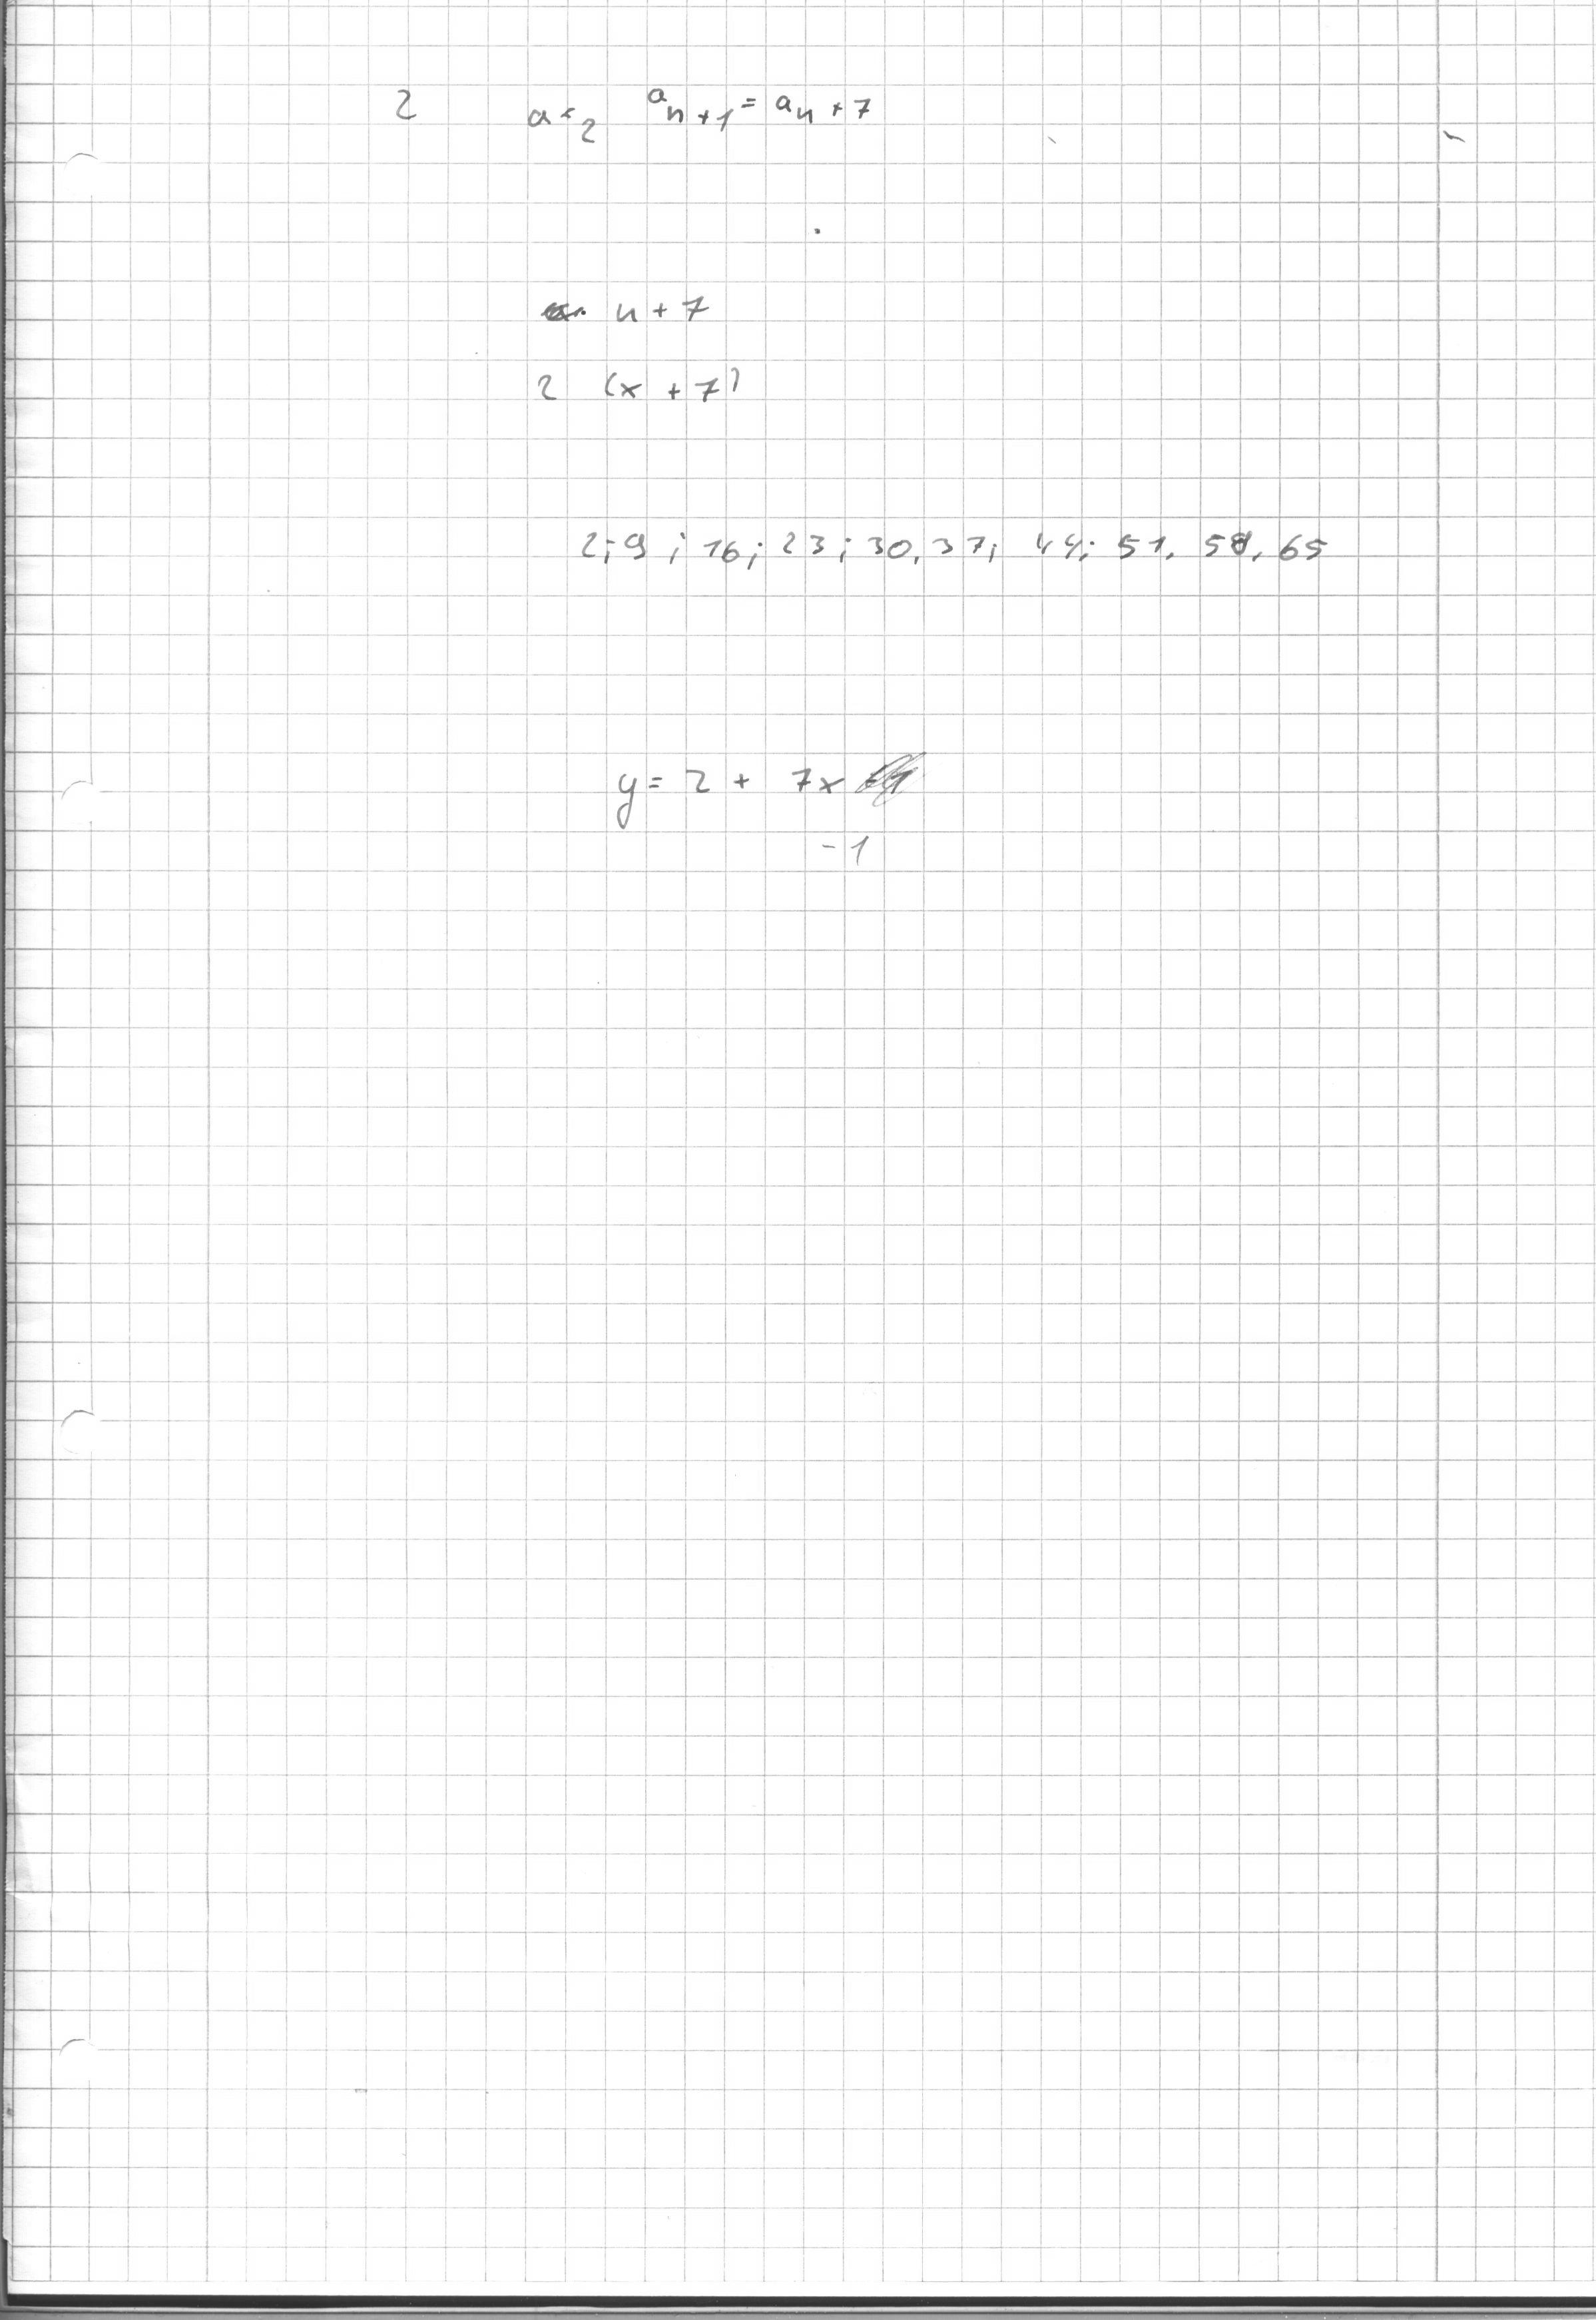 2 a = 2 aₙ₊₁ = aₙ + 7
n + 7
2 (x + 7)
2; 9; 16; 23; 30, 37; 44; 51, 58, 65
y = 2 + 7x
- 1